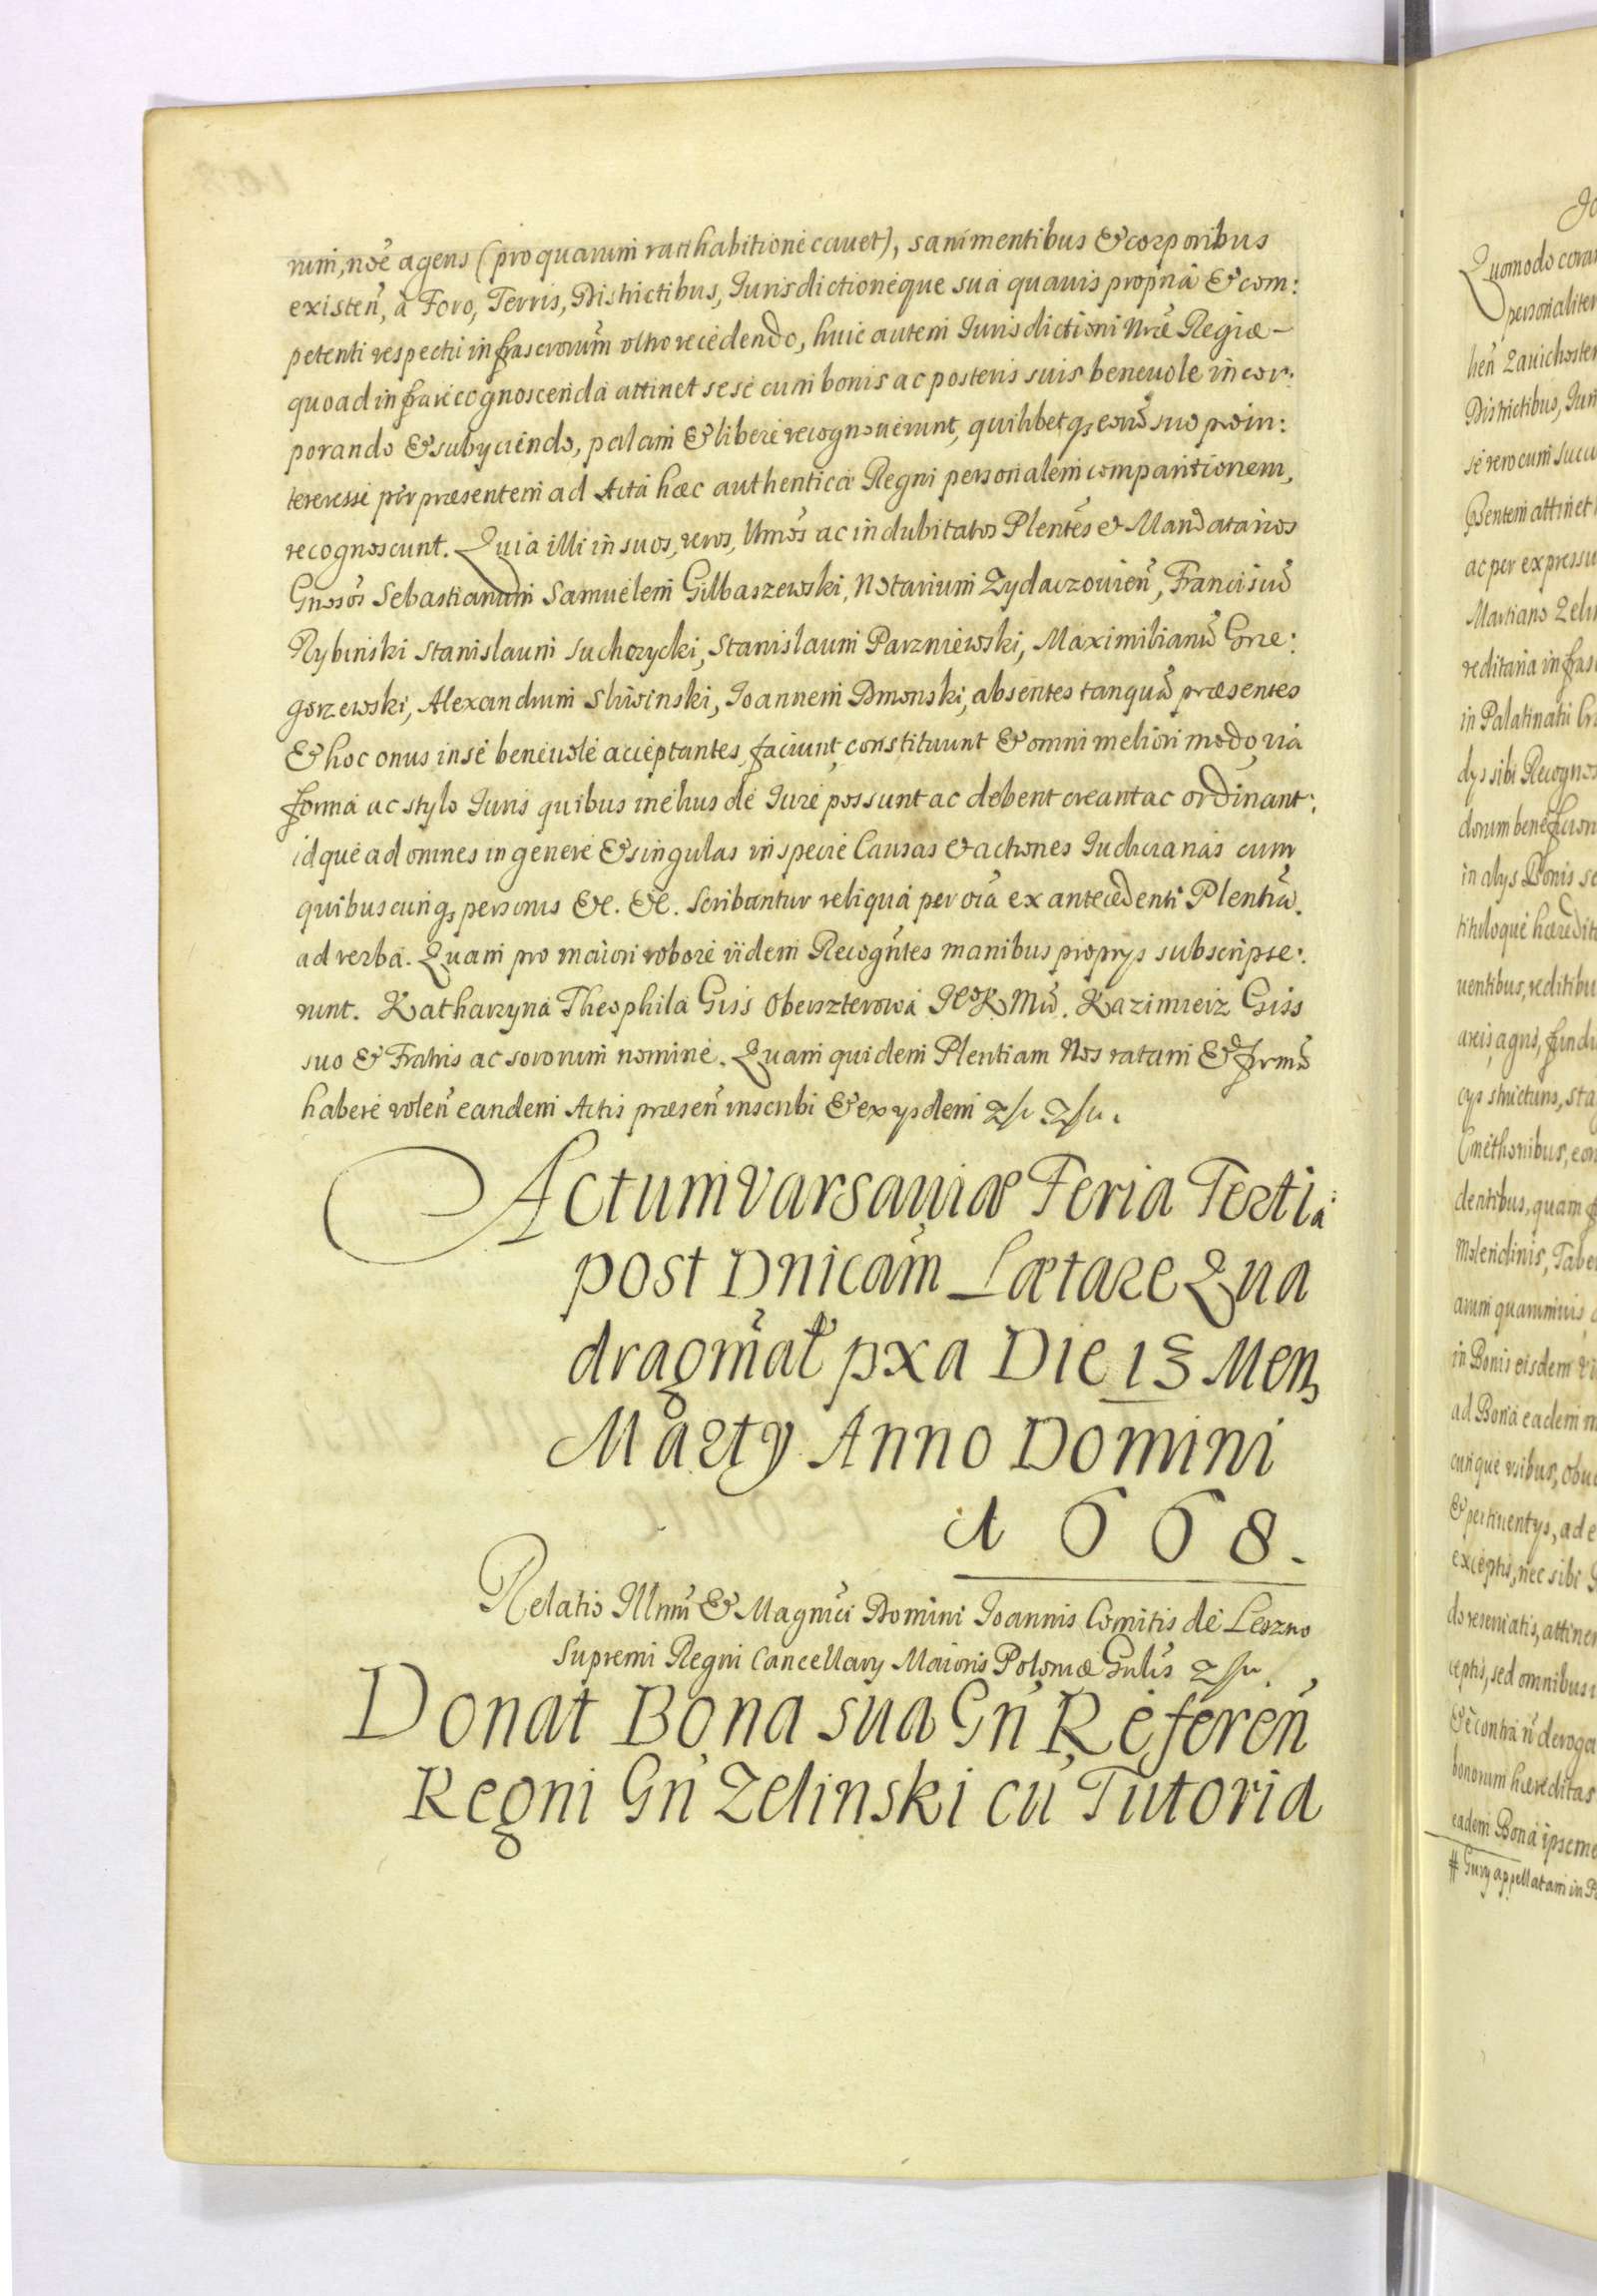 rum, nõe agens (pro quarum ratihabitione cauet), sani mentibus & corporibus
existeñ, à Foro, Terris, Districtibus, Iurisdictioneque sua quauis propria & com:
petenti respectu infrascrorum vltro recedendo, huic autem Iurisdictioni Nrae Regiae –
quoad infra recognoscenda attinet sese cum bonis ac posteris suis beneuole incor:
porando & subyciendo, palam & libere recognouerunt, quilibetq; eorũ suo proin:
teresse per praesentem ad Acta haec authentica Regni personalem comparitionem,
recognoscunt. Quia illi in suos, veros, ltmos ac indubitatos Plentes & Mandatarios
Gnosos Sebastianum Samuelem Gilbaszewski, Notarium Zydaczouieñ, Francisũ
Rybinski Stanislaum Suchozycki, Stanislaum Parzniewski, Maximilianũ Grze:
gorzewski, Alexandrum Sliwinski, Joannem Dmonski, absentes tanquã praesentes
& hoc onus in se beneuole acceptantes, faciunt, constituunt & omni meliori modo, via
forma ac stylo Iuris quibus melius de Iure possunt ac debent creant ac ordinant:
idque ad omnes in genere & singulas in specie Causas & actiones Iudiciarias cum
quibuscunq; personis &c. &c. Scribantur reliqua per oia ex antecedenti Plentia.
ad verba. Quam pro maiori robore iidem Recogntes manibus proprys subscripse:
runt. Katharzyna Theophila Giss Oberszterowa JKMci. Kazimierz Giss
suo & Fratris ac sororum nomine. Quam quidem Plentiam Nos ratam & firmã
habere voleñ eandem Actis praeseñ inscribi & ex ysdem
Actum Varsauiae Feria Tertia
post Dnicam Laetare Qua
dragmal pxa Die 13 Mens
Marty Anno Domini
1668.
Relatio Illmi & Magnici Domini Joannis Comitis de Leszno
Supremi Regni Cancellary Maioris Poloniae Gnlis
Donat Bona sua Gñ Refereñ
Regni Gñ Zelinski cũ Tutoria
Quomodo coram
personaliter
Districtibus, Iuri
ac per expressu
Martiano Zeli
reditaria infras
in Palatinatu
dys sibi Recognos
in alys Bonis
tituloque haeredit
uentibus, reditibu
areis, agris, fundi
cys structuris, sta
Cmethonibus,
dentibus, quam
Molendinis, Tabe
arum quarumuis
in Bonis eisdem
ad Bona eadem
cunque vsibus,
& pertinentys, ad
exceptis, nec sibi
do reseruatis, attinen
ceptis, sed omnibus
& è contra ñ deroga
bonorum haereditas
eadem Bona ipseme
# Gury appellatam in